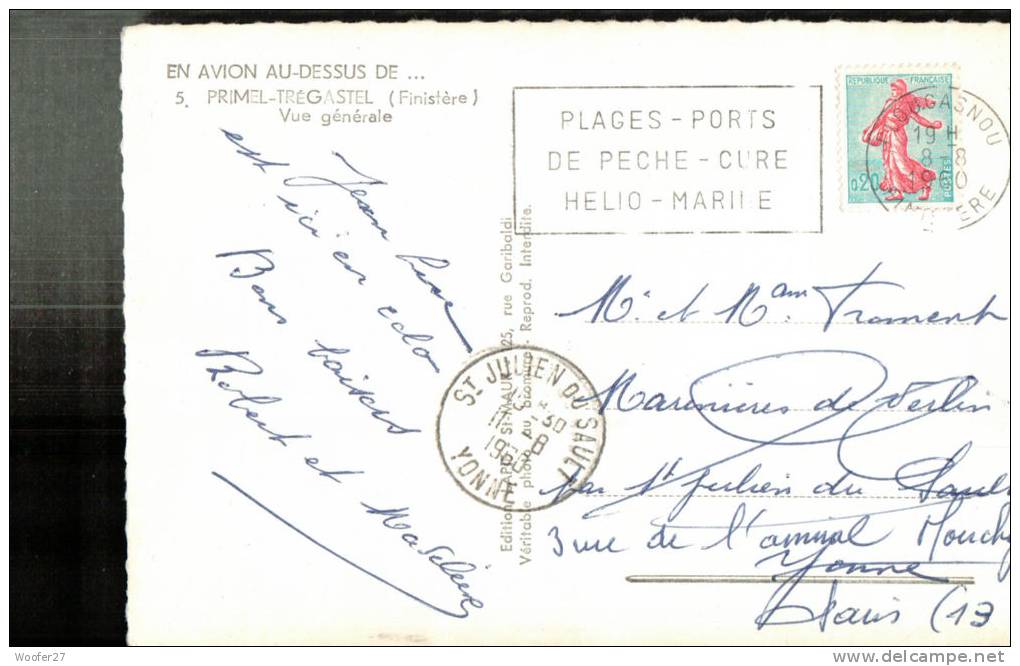 EN AVION AU-DESSUS DE ...
5. PRIMEL-TRÉGASTEL (Finistère)
Vue générale
Jean Luc
est ici en colo
Bons baisers
Robert et Madeleine
PLAGES - PORTS
DE PECHE - CURE
HELIO - MARINE
REPUBLIQUE FRANÇAISE
0,20
POSTES
19 H
8 - 8
1960
FINISTERE
25, rue Garibaldi
Véritable photo au bromure - Reprod. Interdite.
ST JULIEN DU SAULT
11 - 8
1960
YONNE
Mr. et Mme Froment
de Verlin
par St Julien du Sault
3 rue de l'amiral Mouchez
Yonne
Paris (13
Woofer27
delcampe.net